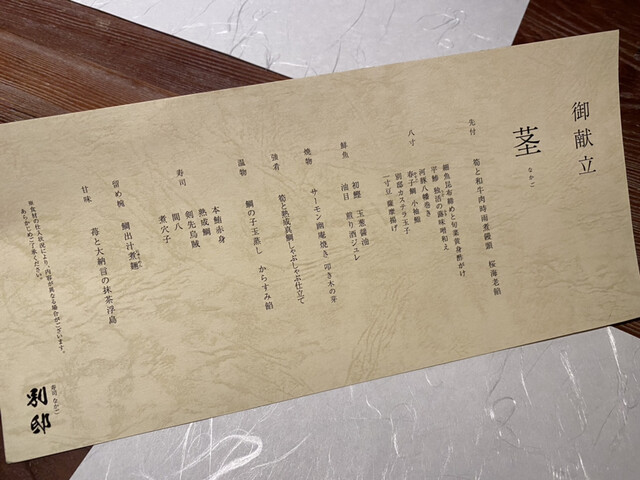 御献立
茎
なかご
先付
筍と和牛肉時雨煮饅頭 桜海老餡
八寸
細魚昆布締めと旬菜黄身酢がけ
平鯵 独活の蕗味噌和え
河豚八幡巻き
春子鯛 小袖鮨
別邸カステラ玉子
一寸豆 薩摩揚げ
鮮魚
初鰹 玉葱醤油
油目 煎り酒ジュレ
焼物
サーモン幽庵焼き 叩き木の芽
強肴
筍と熟成真鯛しゃぶしゃぶ仕立て
温物
鯛の子玉蒸し からすみ餡
寿司
本鮪赤身
熟成鯛
剣先烏賊
間八
煮穴子
留め椀
鯛出汁煮麺
甘味
苺と大納言の抹茶浮島
※食材の仕入状況により、内容が異なる場合がございます。
あらかじめご了承ください。
寿司 なかご
別邸